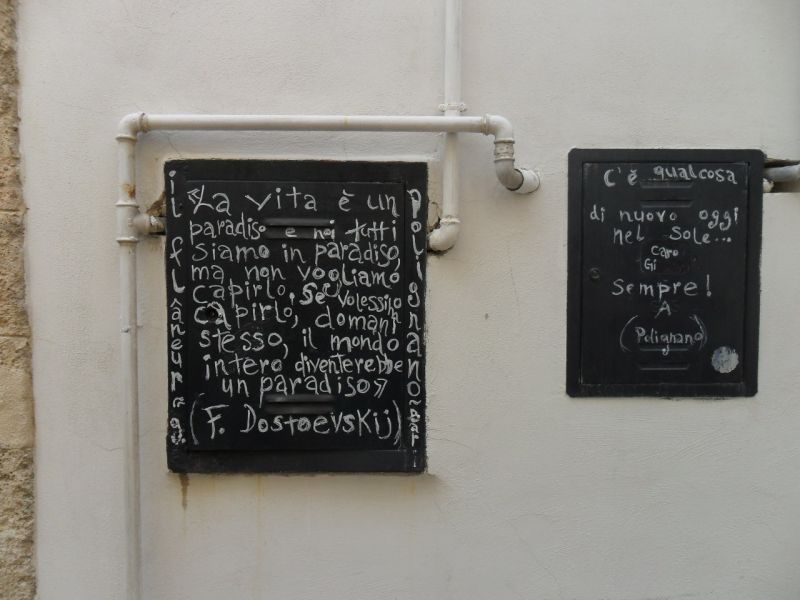 «La vita è un
paradiso e noi tutti
siamo in paradiso,
ma non vogliamo
capirlo, se volessimo
capirlo, domani
stesso, il mondo
intero diventerebbe
un paradiso»
(F. Dostoevskij)
il flâneur
Polignano-Bari
C'è qualcosa
di nuovo oggi
nel sole...
caro
Gi
Sempre!
A
(Polignano)